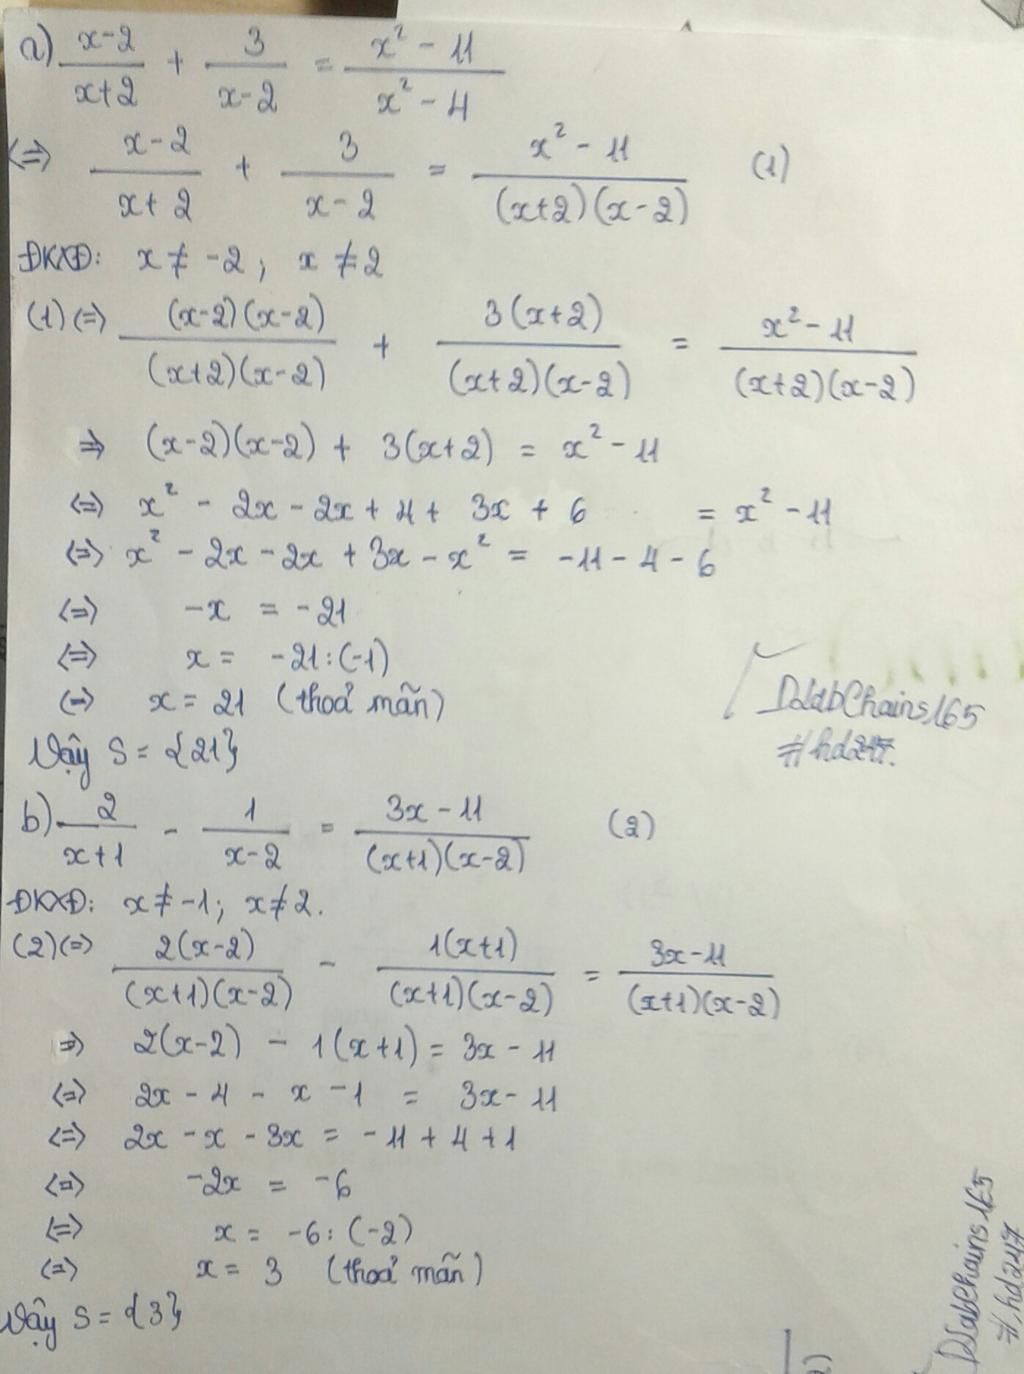 a) (x-2)/(x+2) + 3/(x-2) = (x² - 11)/(x² - 4)
<=> (x-2)/(x+2) + 3/(x-2) = (x² - 11)/((x+2)(x-2)) (1)
ĐKXĐ: x ≠ -2; x ≠ 2
(1) <=> ((x-2)(x-2))/((x+2)(x-2)) + (3(x+2))/((x+2)(x-2)) = (x² - 11)/((x+2)(x-2))
=> (x-2)(x-2) + 3(x+2) = x² - 11
<=> x² - 2x - 2x + 4 + 3x + 6 = x² - 11
<=> x² - 2x - 2x + 3x - x² = -11 - 4 - 6
<=> -x = -21
<=> x = -21 : (-1)
<=> x = 21 (thoả mãn)
DLabChains165
#hd247.
Vậy S = {21}
b) 2/(x+1) - 1/(x-2) = (3x - 11)/((x+1)(x-2)) (2)
ĐKXĐ: x ≠ -1; x ≠ 2.
(2) <=> (2(x-2))/((x+1)(x-2)) - (1(x+1))/((x+1)(x-2)) = (3x-11)/((x+1)(x-2))
=> 2(x-2) - 1(x+1) = 3x - 11
<=> 2x - 4 - x - 1 = 3x - 11
<=> 2x - x - 3x = -11 + 4 + 1
<=> -2x = -6
<=> x = -6 : (-2)
<=> x = 3 (thoả mãn)
Vậy S = {3}
DLabChains165
#hd247